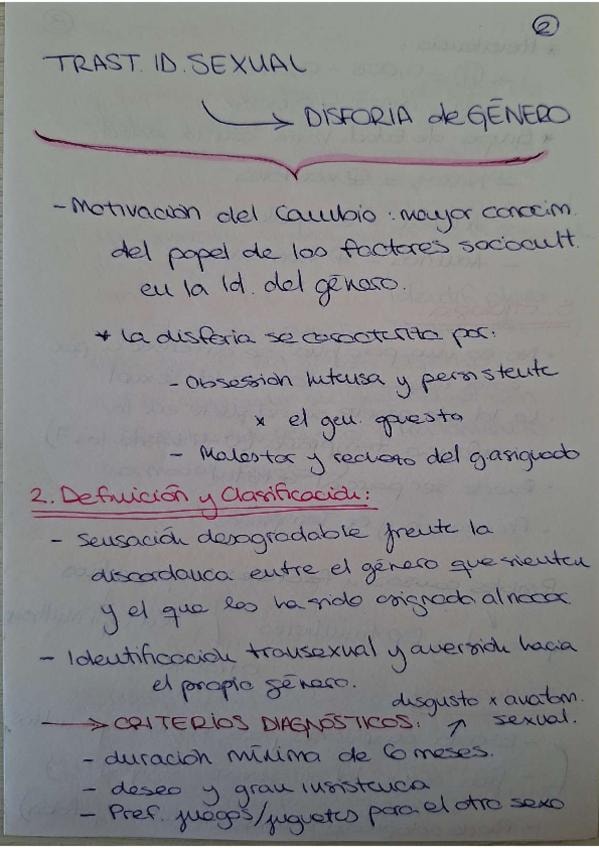 2
TRAST. ID. SEXUAL
DISFORIA de GÉNERO
- Motivación del Cambio: mayor conocim.
del papel de los factores sociocult.
en la Id. del género.
* La disforia se caracteriza por:
- Obsession intensa y persistente
x el gen. opuesto
- Malestar y rechazo del g. asignado
2. Definición y Clasificación:
- Sensación desagradable frente la
discordancia entre el género que sienten
y el que les ha sido asignado al nacer
- Identificación transexual y aversión hacia
el propio género.
disgusto x anatom.
sexual.
CRITERIOS DIAGNÓSTICOS:
- duración mínima de 6 meses.
- deseo y gran insistencia
- Pref. juegos/juguetes para el otro sexo